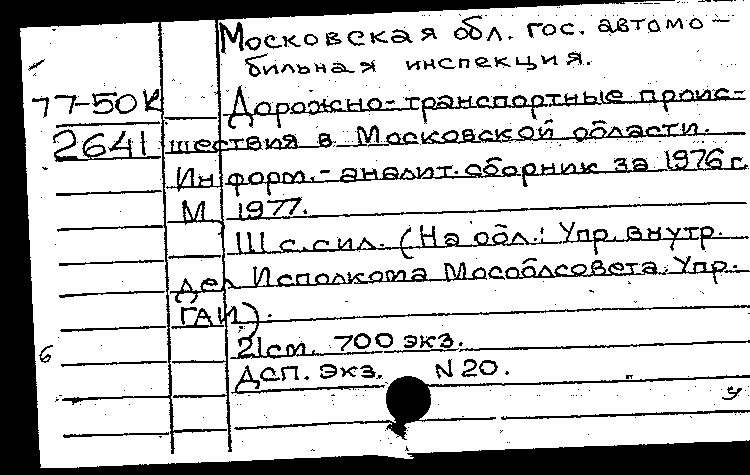 Московская обл. гос. автомо-
бильная инспекция.
77-50К Дорожно-транспортные проис-
2641 шествия в Московской области.
Информ.-аналит. сборник за 1976 г.
М, 1977.
III с. с ил. (На обл.: Упр. внутр.
дел Исполкома Мособлсовета. Упр.
ГАИ).
21 см. 700 экз.
6
Дсп. Экз. N 20.
У